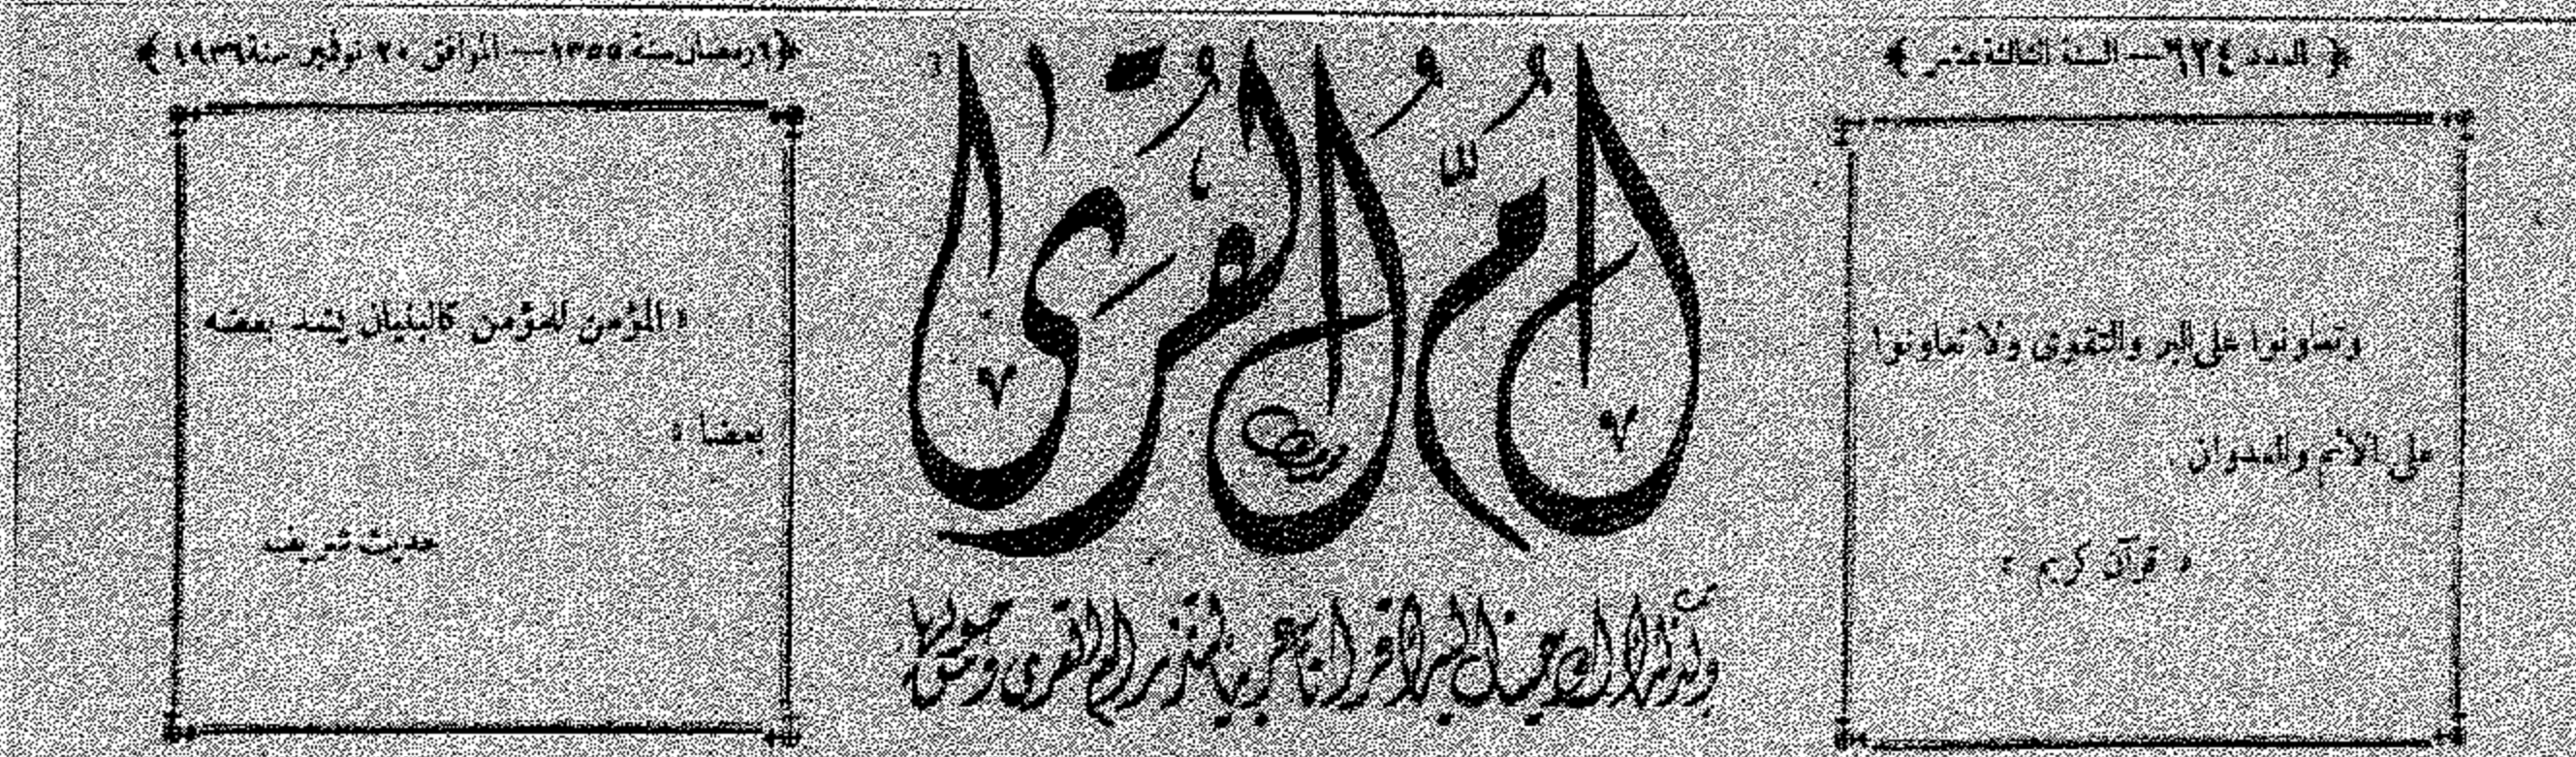 ﴿ العدد ٦٢٤ — السنة الثالثة عشر ﴾
وتعاونوا على البر والتقوى ولا تعاونوا
على الاثم والعدوان .
« قرآن كريم »
أم القرى
وكذلك أوحينا إليك قرآنا عربيا لتنذر أم القرى ومن حولها
﴿ ٦ رمضان سنة ١٣٥٥ — الموافق ٢٠ نوفمبر سنة ١٩٣٦ ﴾
« المؤمن للمؤمن كالبنيان يشد بعضه
بعضا »
حديث شريف